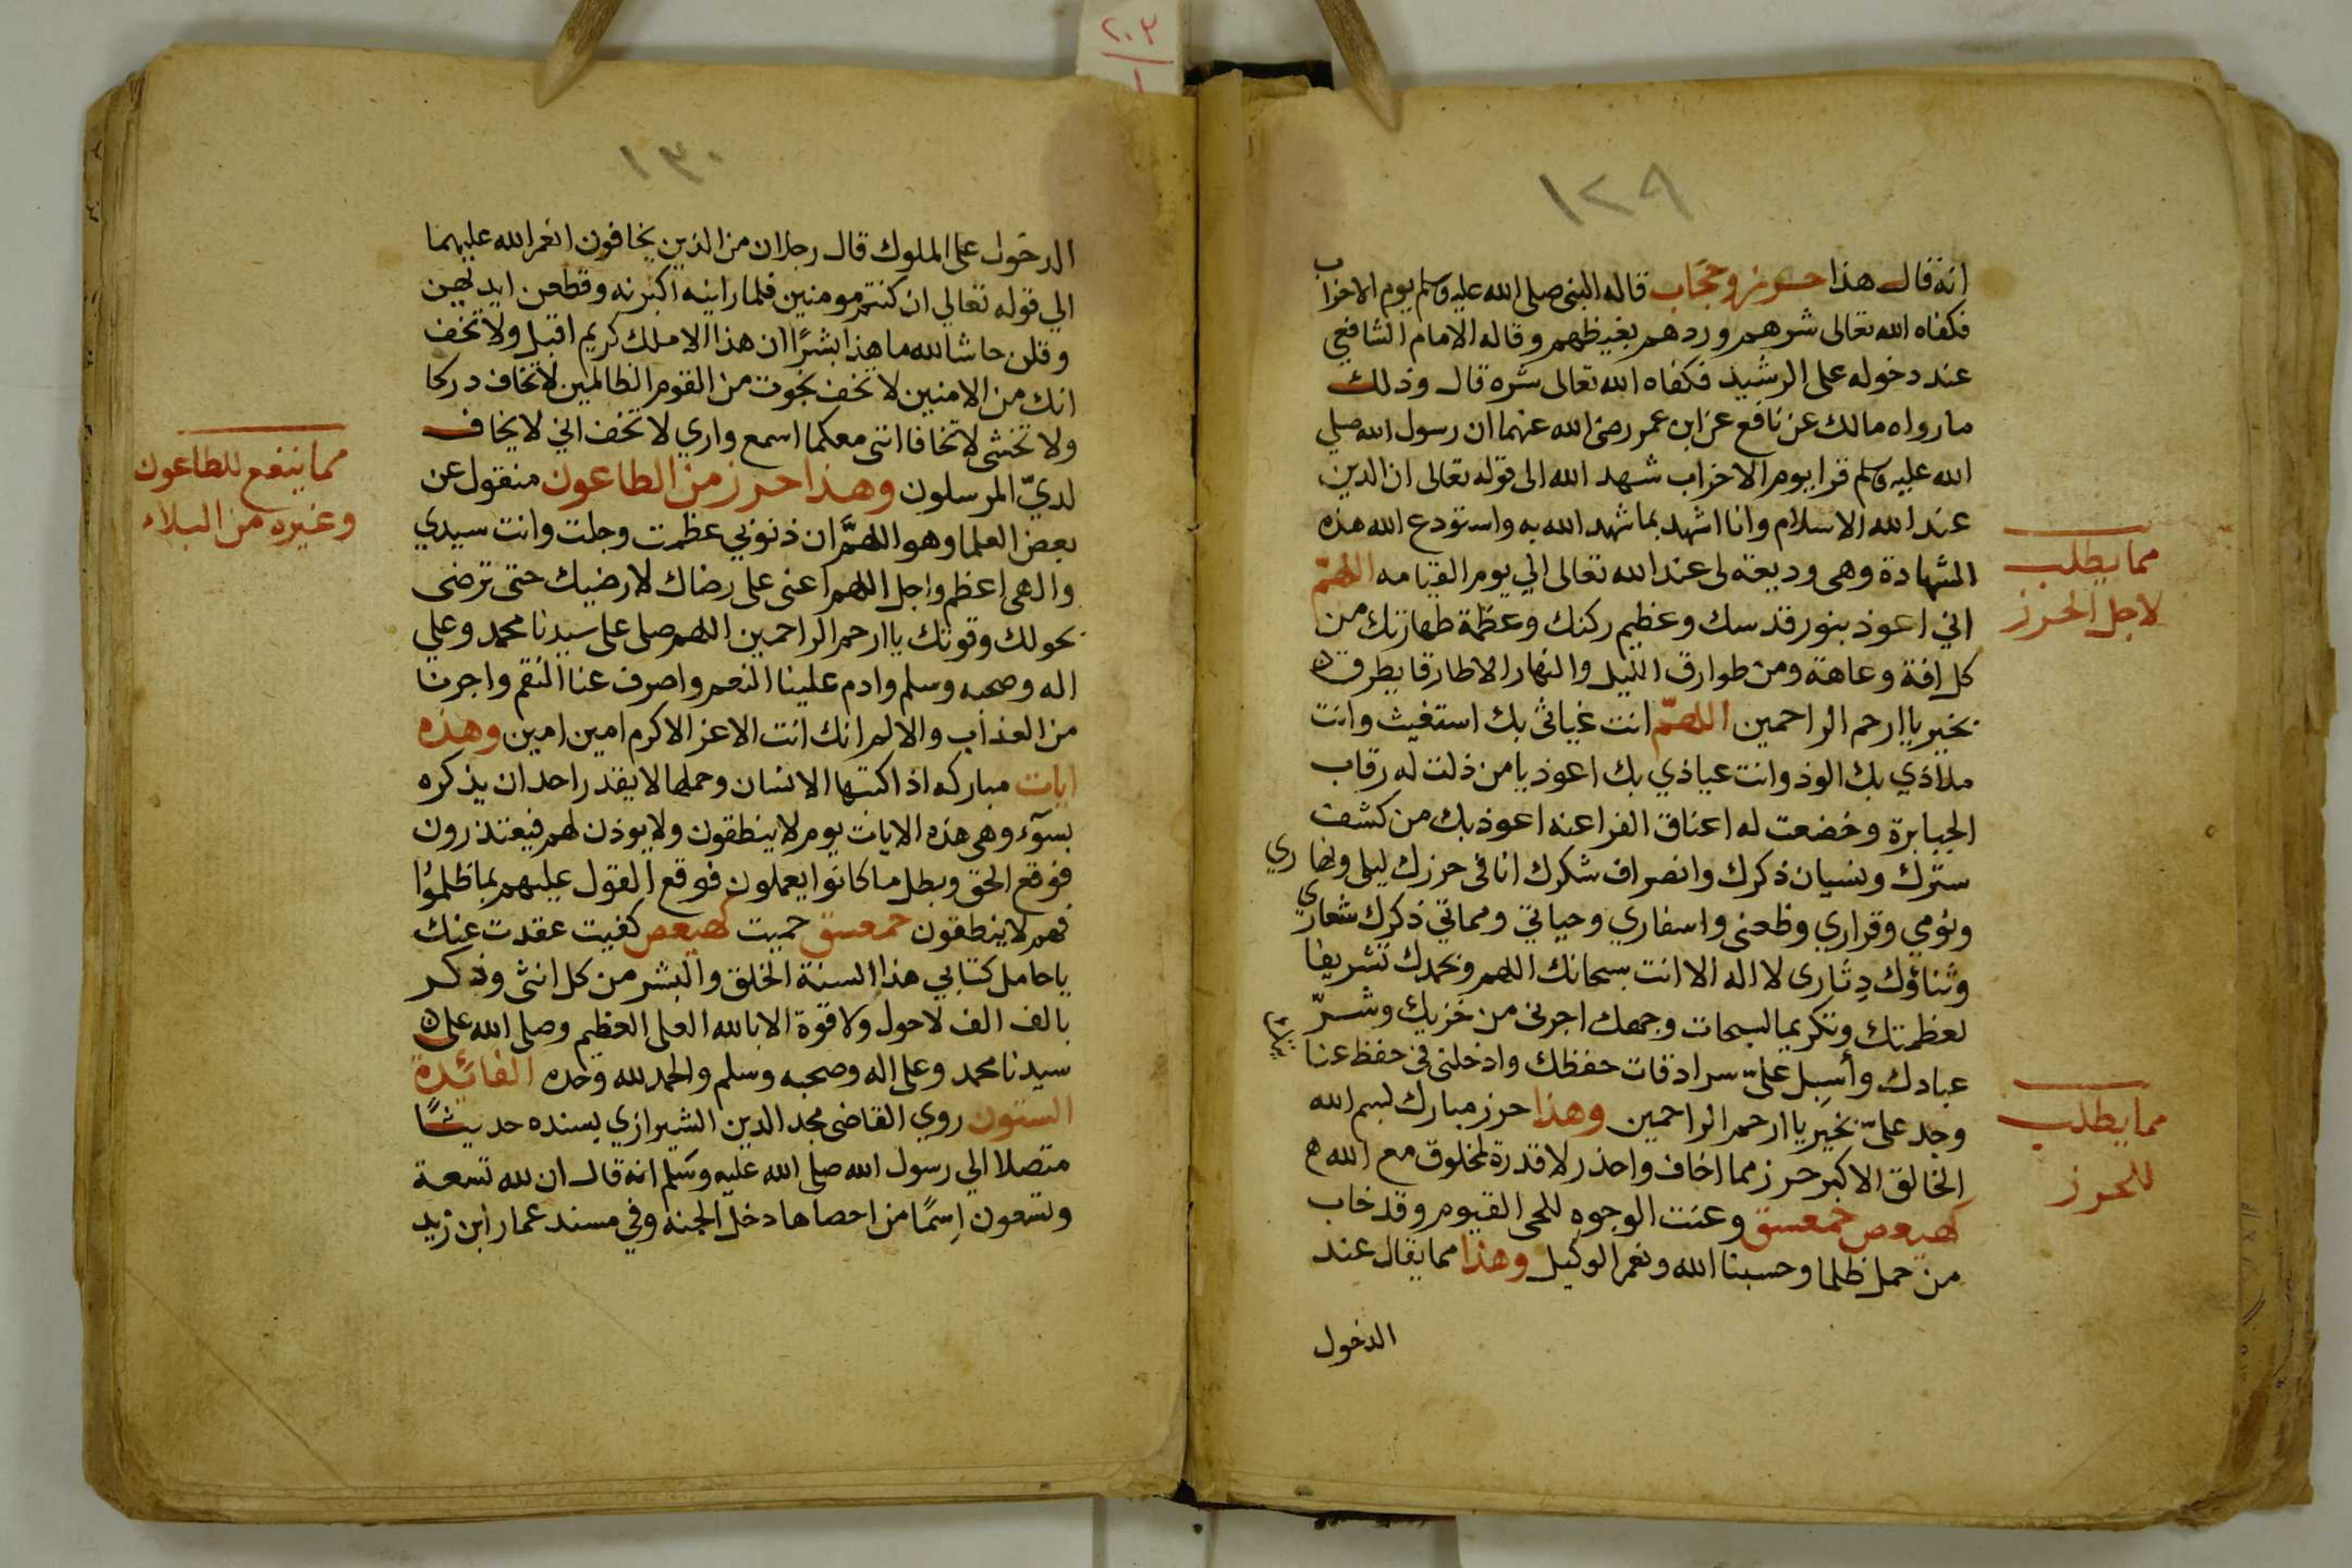 ٢٠٣
١
١٢٩
انه قال هذا حرز وحجاب قاله النبى صلى الله عليه وسلم يوم الاحزاب
فكفاه الله تعالى شرهم وردهم بغيظهم وقاله الامام الشافعي
عند دخوله على الرشيد فكفاه الله تعالى شره قال وذلك
مارواه مالك عن نافع عن ابن عمر رضى الله عنهما ان رسول الله صلي
الله عليه وسلم قرا يوم الاحزاب شهد الله الى قوله تعالى ان الدين
عند الله الاسلام وانا اشهد بما شهد الله به واستودع الله هذه
الشهادة وهى وديعة لى عند الله تعالى الي يوم القيامه اللهمّ
اني اعوذ بنور قدسك وعظيم ركنك وعظمة طهارتك من
كل افة وعاهة ومن طوارق الليل والنهار الا طارقا يطرق
بخير يا ارحم الراحمين اللهمّ انت غياثى بك استغيث وانت
ملاذي بك الوذ وانت عياذي بك اعوذ يا من ذلت له رقاب
الجبابرة وخضعت له اعناق الفراعنه اعوذ بك من كشف
سترك ونسيان ذكرك وانصراف شكرك انا فى حرزك ليلى ونهاري
ونومي وقراري وظعنى واسفاري وحياتي ومماتي ذكرك شعاري
وثناؤك دِثارى لا اله الا انت سبحانك اللهم وبحمدك تشريفا
لعظمتك وتكريما لسبحات وجهك اجرنى من خزيك وشرّ
عبادك وأسبل علىّ سرادقات حفظك وادخلنى فى حفظ عنا
وجد علىّ بخير يا ارحم الراحمين وهذا حرز مبارك بسم الله
الخالق الاكبر حرز مما اخاف واحذر لا قدرة لمخلوق مع الله
كهيعص حمعسق وعنت الوجوه للحى القيوم وقد خاب
من حمل ظلما وحسبنا الله ونعم الوكيل وهذا مما يقال عند
الدخول
مما يطلب
لاجل الحرز
مما يطلب
للحرز
١٣٠
الدخول على الملوك قال رجلان من الذين يخافون انعم الله عليهما
الي قوله تعالي ان كنتم مومنين فلما راينه اكبرنه وقطعن ايديهن
وقلن حاشا لله ما هذا بشرًا ان هذا الا ملك كريم اقبل ولا تخف
انك من الامنين لا تخف نجوت من القوم الظالمين لا تخاف دركا
ولا تخشى لا تخافا انني معكما اسمع واري لا تخف اني لا يخاف
لديّ المرسلون وهذا حرز من الطاعون منقول عن
بعض العلما وهو اللهمَّ ان ذنوبي عظمت وجلت وانت سيدي
والهى اعظم واجل اللهم اعنى على رضاك لارضيك حتى ترضى
بحولك وقوتك يا ارحم الراحمين اللهم صلى على سيدنا محمد وعلي
اله وصحبه وسلم وادم علينا النعم واصرف عنا النقم واجرنا
من العذاب والالم انك انت الاعز الاكرم امين امين وهذه
ايات مباركه اذا كتبها الانسان وحملها لا يقدر احد ان يذكره
بسوٓء وهى هذه الايات يوم لا ينطقون ولا يوذن لهم فيعتذرون
فوقع الحق وبطل ما كانوا يعملون فوقع القول عليهم بما ظلموا
فهم لا ينطقون حمعسق حميت كهيعص كفيت عقدت عنك
يا حامل كتابي هذا السنة الخلق والبشر من كل انثى وذكر
بالف الف لا حول ولا قوة الا بالله العلى العظيم وصلى الله على
سيدنا محمد وعلى اله وصحبه وسلم والحمد لله وحده الفائدة
الستون روي القاضى مجد الدين الشيرازي بسنده حديثًا
متصلا الي رسول الله صلى الله عليه وسلم انه قال ان لله تسعة
وتسعون اِسمًا من احصاها دخل الجنه وفي مسند عمار ابن زيد
مما ينفع للطاعون
وغيره من البلاء